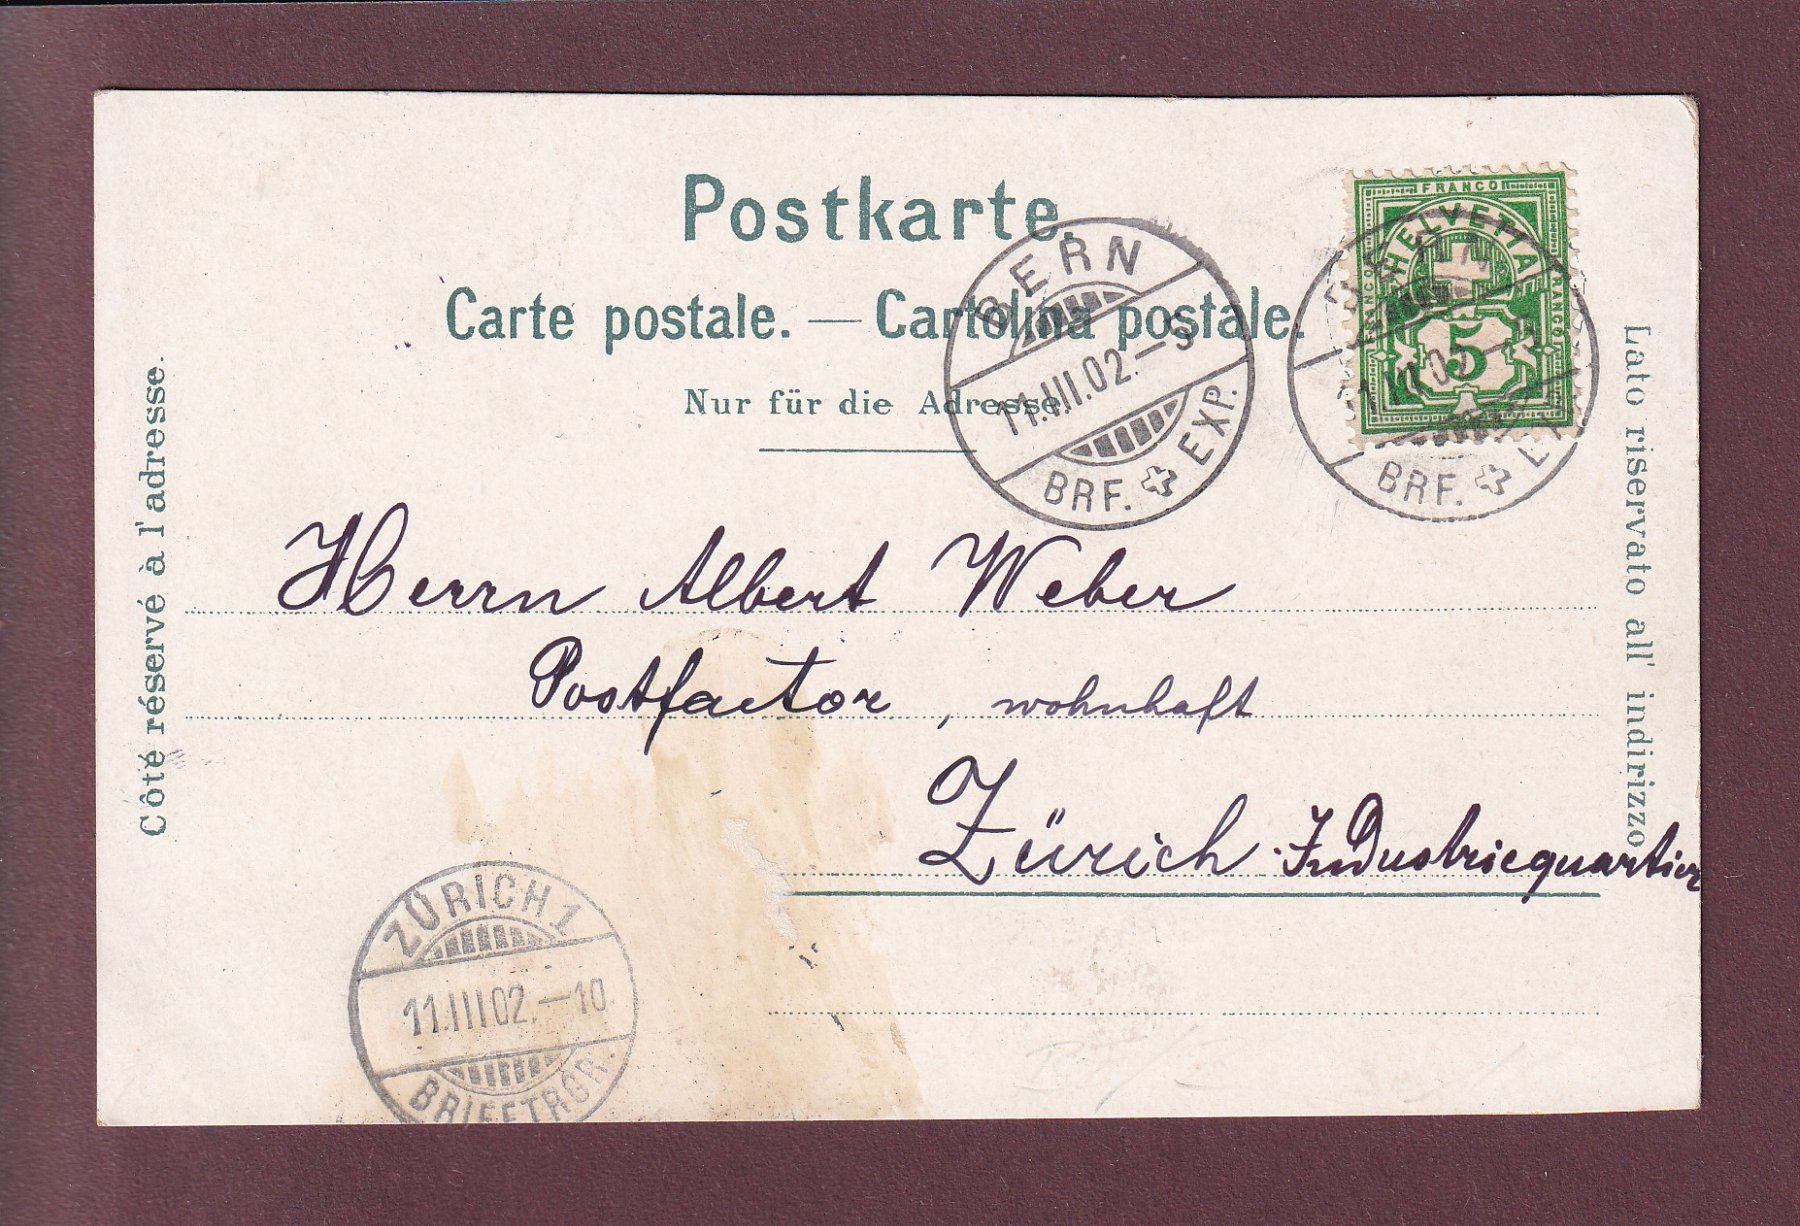 Postkarte.
Carte postale. — Cartolina postale.
Nur für die Adresse.
Côté réservé à l'adresse.
Lato riservato all' indirizzo
FRANCO
HELVETIA
FRANCO
FRANCO
5
BERN
11.III.02.–5
BRF. EXP.
BRF.
Herrn Albert Weber
Postfactor, wohnhaft
Zürich Industriequartier
ZÜRICH 1
11.III.02.–10
BRIEFTRGR.